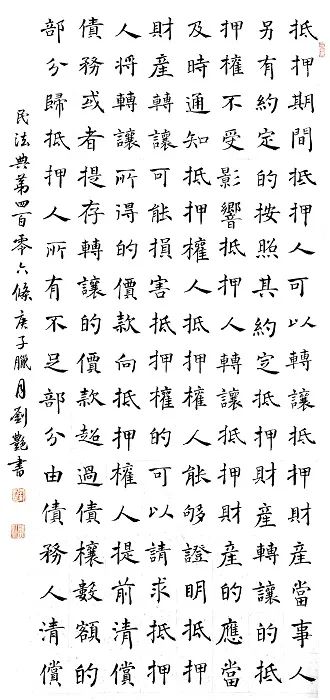 抵押期間抵押人可以轉讓抵押財產當事人
另有約定的按照其約定抵押財產轉讓的抵
押權不受影響抵押人轉讓抵押財產的應當
及時通知抵押權人抵押權人能夠證明抵押
財產轉讓可能損害抵押權的可以請求抵押
人將轉讓所得的價款向抵押權人提前清償
債務或者提存轉讓的價款超過債權數額的
部分歸抵押人所有不足部分由債務人清償
民法典第四百零六條庚子臘月劉艷書